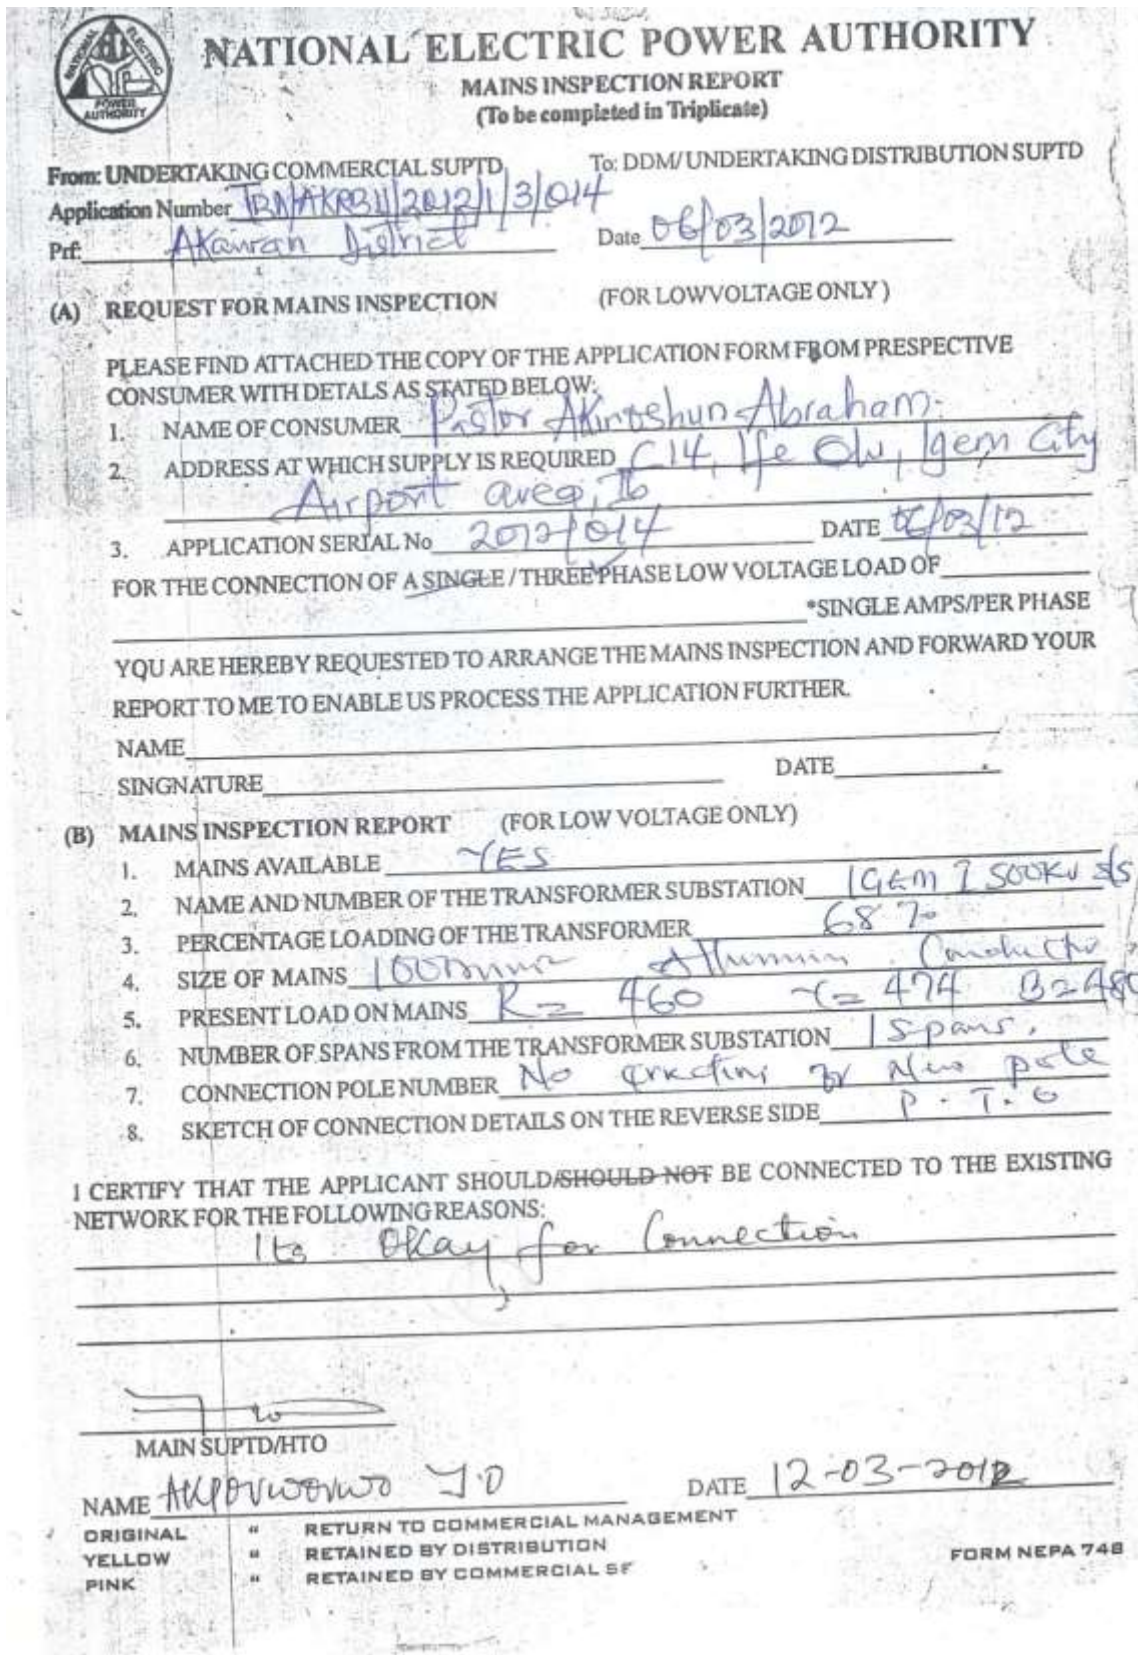 NATIONAL ELECTRIC POWER AUTHORITY
NATIONAL ELECTRIC
POWER
AUTHORITY
MAINS INSPECTION REPORT
(To be completed in Triplicate)
From: UNDERTAKING COMMERCIAL SUPTD To: DDM/ UNDERTAKING DISTRIBUTION SUPTD
Application Number /2012/1/3/014
Prf: District Date 06/03/2012
(A) REQUEST FOR MAINS INSPECTION (FOR LOWVOLTAGE ONLY )
PLEASE FIND ATTACHED THE COPY OF THE APPLICATION FORM FROM PRESPECTIVE
CONSUMER WITH DETALS AS STATED BELOW:
1. NAME OF CONSUMER Pastor Akinoshun Abraham.
2. ADDRESS AT WHICH SUPPLY IS REQUIRED C14, Ife Olu, Igem City
Airport area, Ib
3. APPLICATION SERIAL No 2012/014 DATE 06/03/12
FOR THE CONNECTION OF A SINGLE / THREE PHASE LOW VOLTAGE LOAD OF
*SINGLE AMPS/PER PHASE
YQU ARE HEREBY REQUESTED TO ARRANGE THE MAINS INSPECTION AND FORWARD YOUR
REPORT TO ME TO ENABLE US PROCESS THE APPLICATION FURTHER.
NAME
SINGNATURE DATE
(B) MAINS INSPECTION REPORT (FOR LOW VOLTAGE ONLY)
1. MAINS AVAILABLE YES
2. NAME AND NUMBER OF THE TRANSFORMER SUBSTATION IGEM I 500KV S/S
3. PERCENTAGE LOADING OF THE TRANSFORMER 68%
4. SIZE OF MAINS 100mm²
5. PRESENT LOAD ON MAINS R = 460 Y = 474 B = 480
6. NUMBER OF SPANS FROM THE TRANSFORMER SUBSTATION 1 spans.
7. CONNECTION POLE NUMBER No pole
8. SKETCH OF CONNECTION DETAILS ON THE REVERSE SIDE P.T.O
I CERTIFY THAT THE APPLICANT SHOULD/SHOULD NOT BE CONNECTED TO THE EXISTING
NETWORK FOR THE FOLLOWING REASONS:
Its Okay for Connection
MAIN SUPTD/HTO
NAME DATE 12-03-2012
ORIGINAL " RETURN TO COMMERCIAL MANAGEMENT
YELLOW " RETAINED BY DISTRIBUTION
PINK " RETAINED BY COMMERCIAL SF
FORM NEPA 748